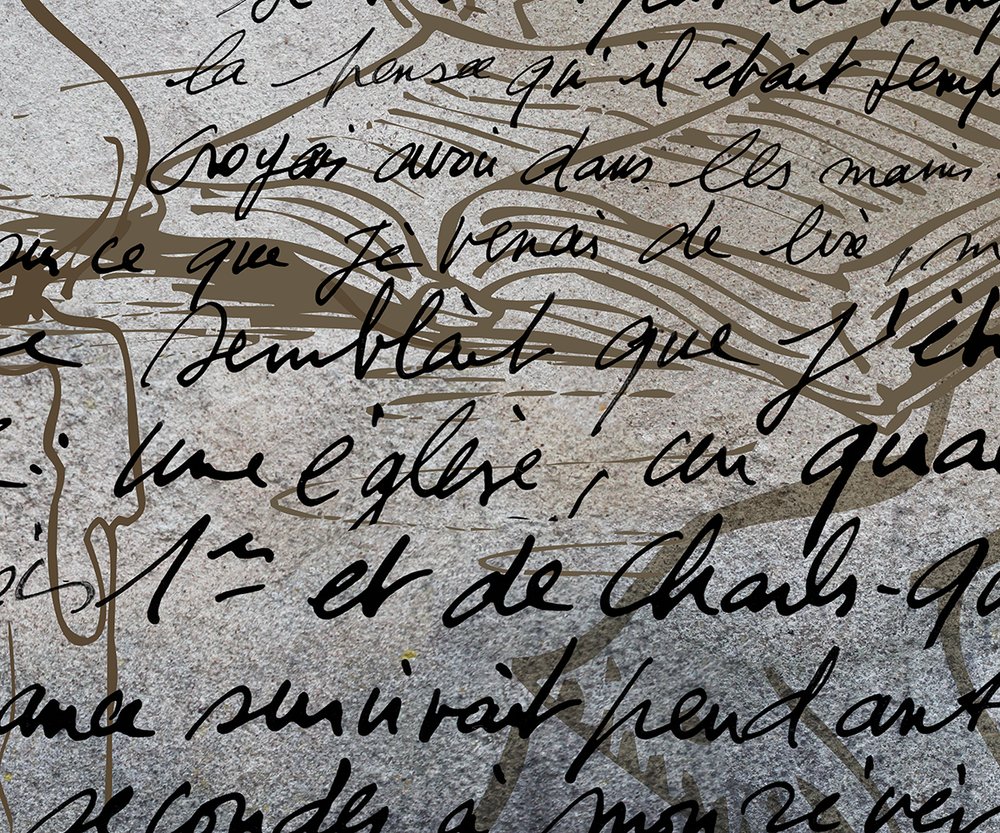 la pensée qu'il était temp
croyais avoir dans les mains
sur ce que je venais de lire, m
semblait que j'ét
: une église, un qua
1er et de Charles-Qu
ance survivait pendant
secondes à mon révei